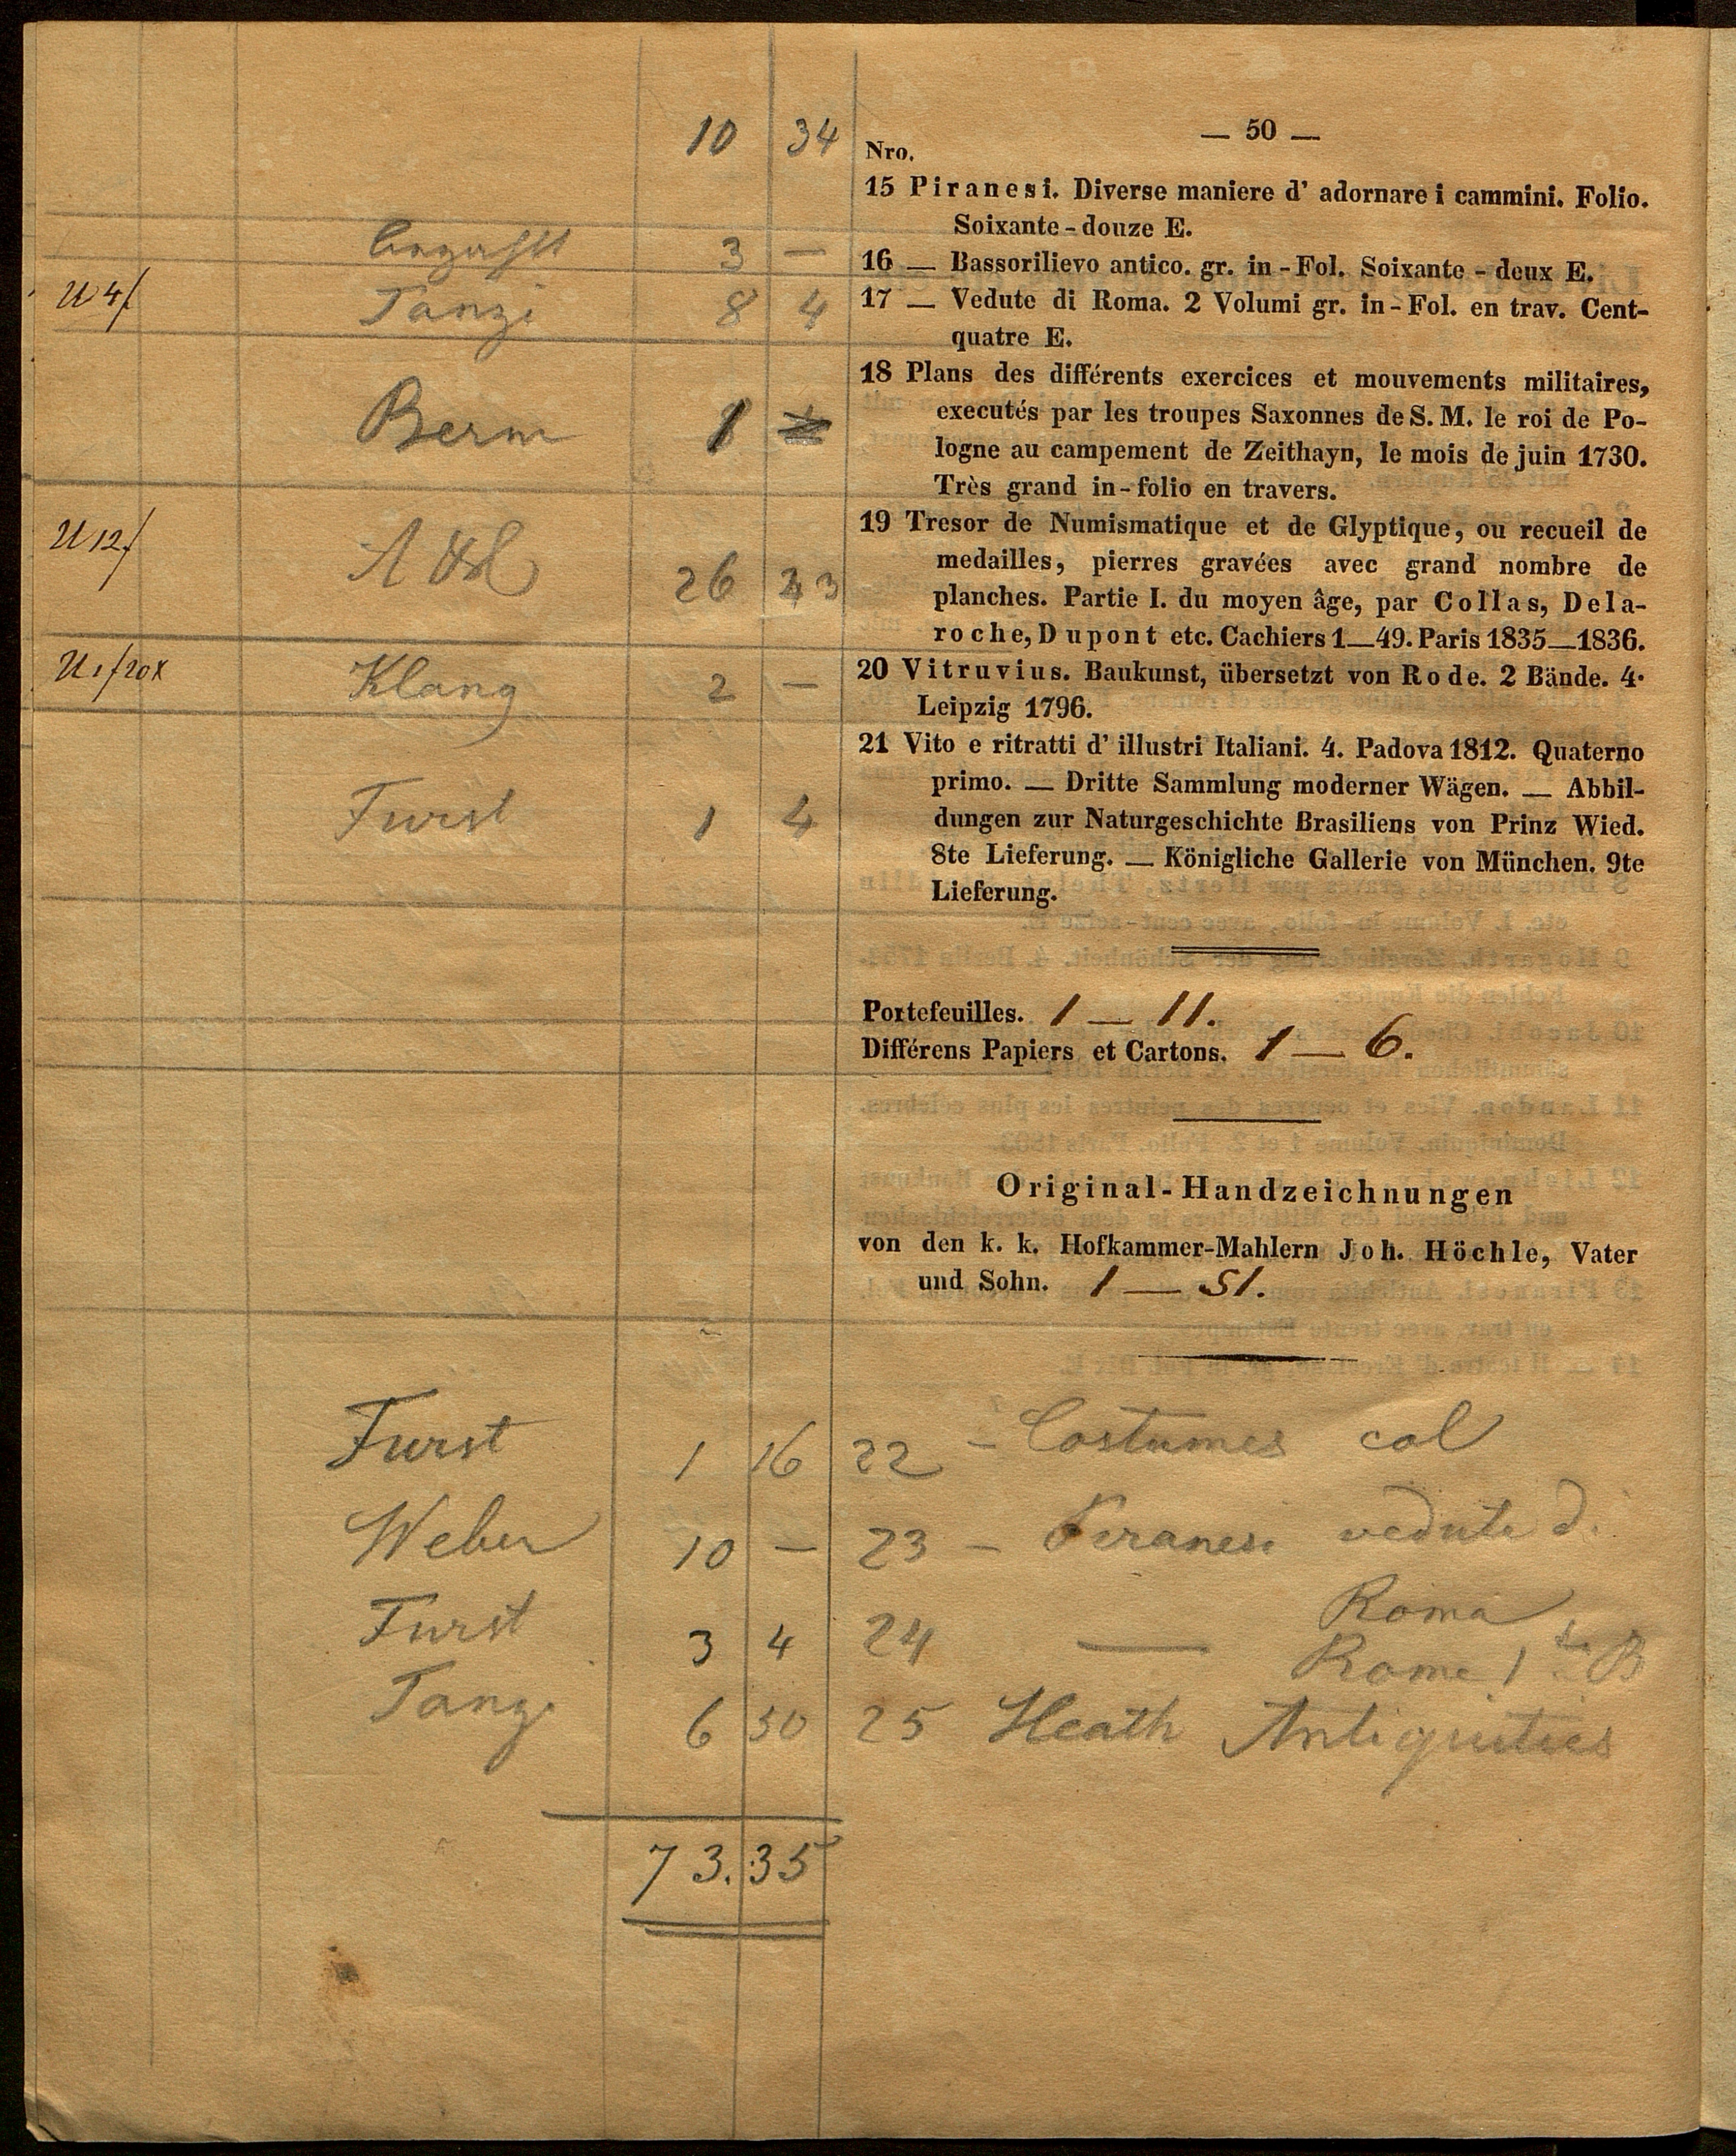 — 50 —
10 34 Nro.
15 Piranesi. Diverse maniere d' adornare i cammini. Folio.
Soixante-douze E.
3 — 16 — Bassorilievo antico. gr. in-Fol. Soixante-deux E.
U 4f Tanzi 8 4 17 — Vedute di Roma. 2 Volumi gr. in-Fol. en trav. Cent-
quatre E.
18 Plans des différents exercices et mouvements militaires,
Berm 1 executés par les troupes Saxonnes de S. M. le roi de Po-
logne au campement de Zeithayn, le mois de juin 1730.
Très grand in-folio en travers.
U 12f 19 Tresor de Numismatique et de Glyptique, ou recueil de
26 medailles, pierres gravées avec grand nombre de
planches. Partie I. du moyen âge, par Collas, Dela-
roche, Dupont etc. Cachiers 1—49. Paris 1835—1836.
U 1f 20x Klang 2 — 20 Vitruvius. Baukunst, übersetzt von Rode. 2 Bände. 4.
Leipzig 1796.
21 Vito e ritratti d' illustri Italiani. 4. Padova 1812. Quaterno
primo. — Dritte Sammlung moderner Wägen. — Abbil-
Furst 1 4 dungen zur Naturgeschichte Brasiliens von Prinz Wied.
8te Lieferung. — Königliche Gallerie von München. 9te
Lieferung.
Portefeuilles. 1 — 11.
Différens Papiers et Cartons. 1 — 6.
Original-Handzeichnungen
von den k. k. Hofkammer-Mahlern Joh. Höchle, Vater
und Sohn. 1 — 51.
Furst 1 16 22 — Costumes col
Weber 10 — 23 — Piranesi vedute d.
Roma
Furst 3 4 24 — Rome 1ter B
Tanzi 6 30 25 Heath Antiquities
73.35